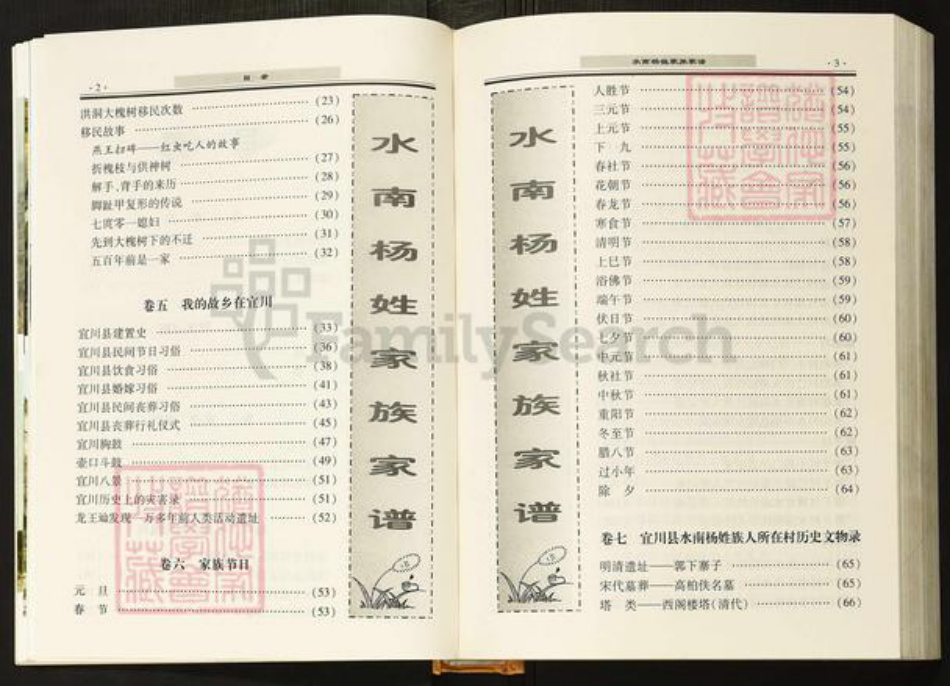 ·2·
目 录
洪洞大槐树移民次数 (23)
移民故事 (26)
燕王扫碑——红虫吃人的故事
折槐枝与供神树 (27)
解手、背手的来历 (28)
脚趾甲复形的传说 (29)
七贡零一媳妇 (30)
先到大槐树下的不迁 (31)
五百年前是一家 (32)
卷五 我的故乡在宜川
宜川县建置史 (33)
宜川县民间节日习俗 (36)
宜川县饮食习俗 (38)
宜川县婚嫁习俗 (41)
宜川县民间丧葬习俗 (43)
宜川县丧葬行礼仪式 (45)
宜川胸鼓 (47)
壶口斗鼓 (49)
宜川八景 (51)
宜川历史上的灾害录 (51)
龙王辿发现一万多年前人类活动遗址 (52)
卷六 家族节日
元 旦 (53)
春 节 (53)
水南杨姓家族家谱
水南杨姓家族家谱
·3·
水南杨姓家族家谱
人胜节 (54)
三元节 (54)
上元节 (55)
下 九 (55)
春社节 (56)
花朝节 (56)
春龙节 (56)
寒食节 (57)
清明节 (58)
上巳节 (58)
浴佛节 (59)
端午节 (59)
伏日节 (60)
七夕节 (60)
中元节 (61)
秋社节 (61)
中秋节 (61)
重阳节 (62)
冬至节 (62)
腊八节 (63)
过小年 (63)
除 夕 (64)
卷七 宜川县水南杨姓族人所在村历史文物录
明清遗址——郭下寨子 (65)
宋代墓葬——高柏佚名墓 (65)
塔 类——西阁楼塔(清代) (66)
FamilySearch